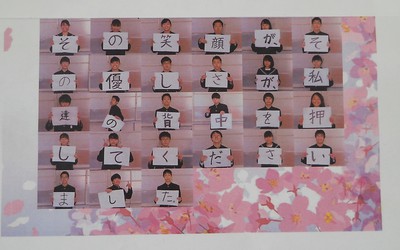 その笑顔が、そ
の優しさが、私
達の背中を押
してください
ました。